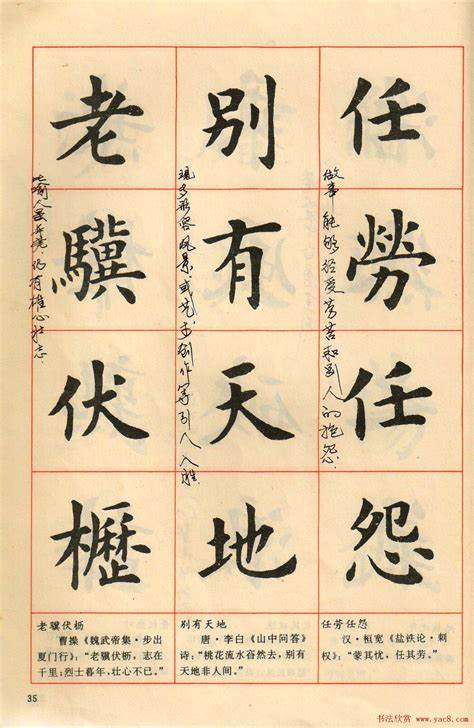 任勞任怨
做事能够经受劳苦和别人的抱怨.
别有天地
现多形容风景.或艺术创作等引人入胜.
老驥伏櫪
比喻人虽年老.仍有雄心壮志.
老骥伏枥
曹操《魏武帝集·步出
夏门行》:“老骥伏枥,志在
千里;烈士暮年,壮心不已。”
别有天地
唐·李白《山中问答》
诗:“桃花流水窅然去,别有
天地非人间。”
任劳任怨
汉·桓宽《盐铁论·刺
权》:“蒙其忧,任其劳。”
35
书法欣赏 www.yac8.com